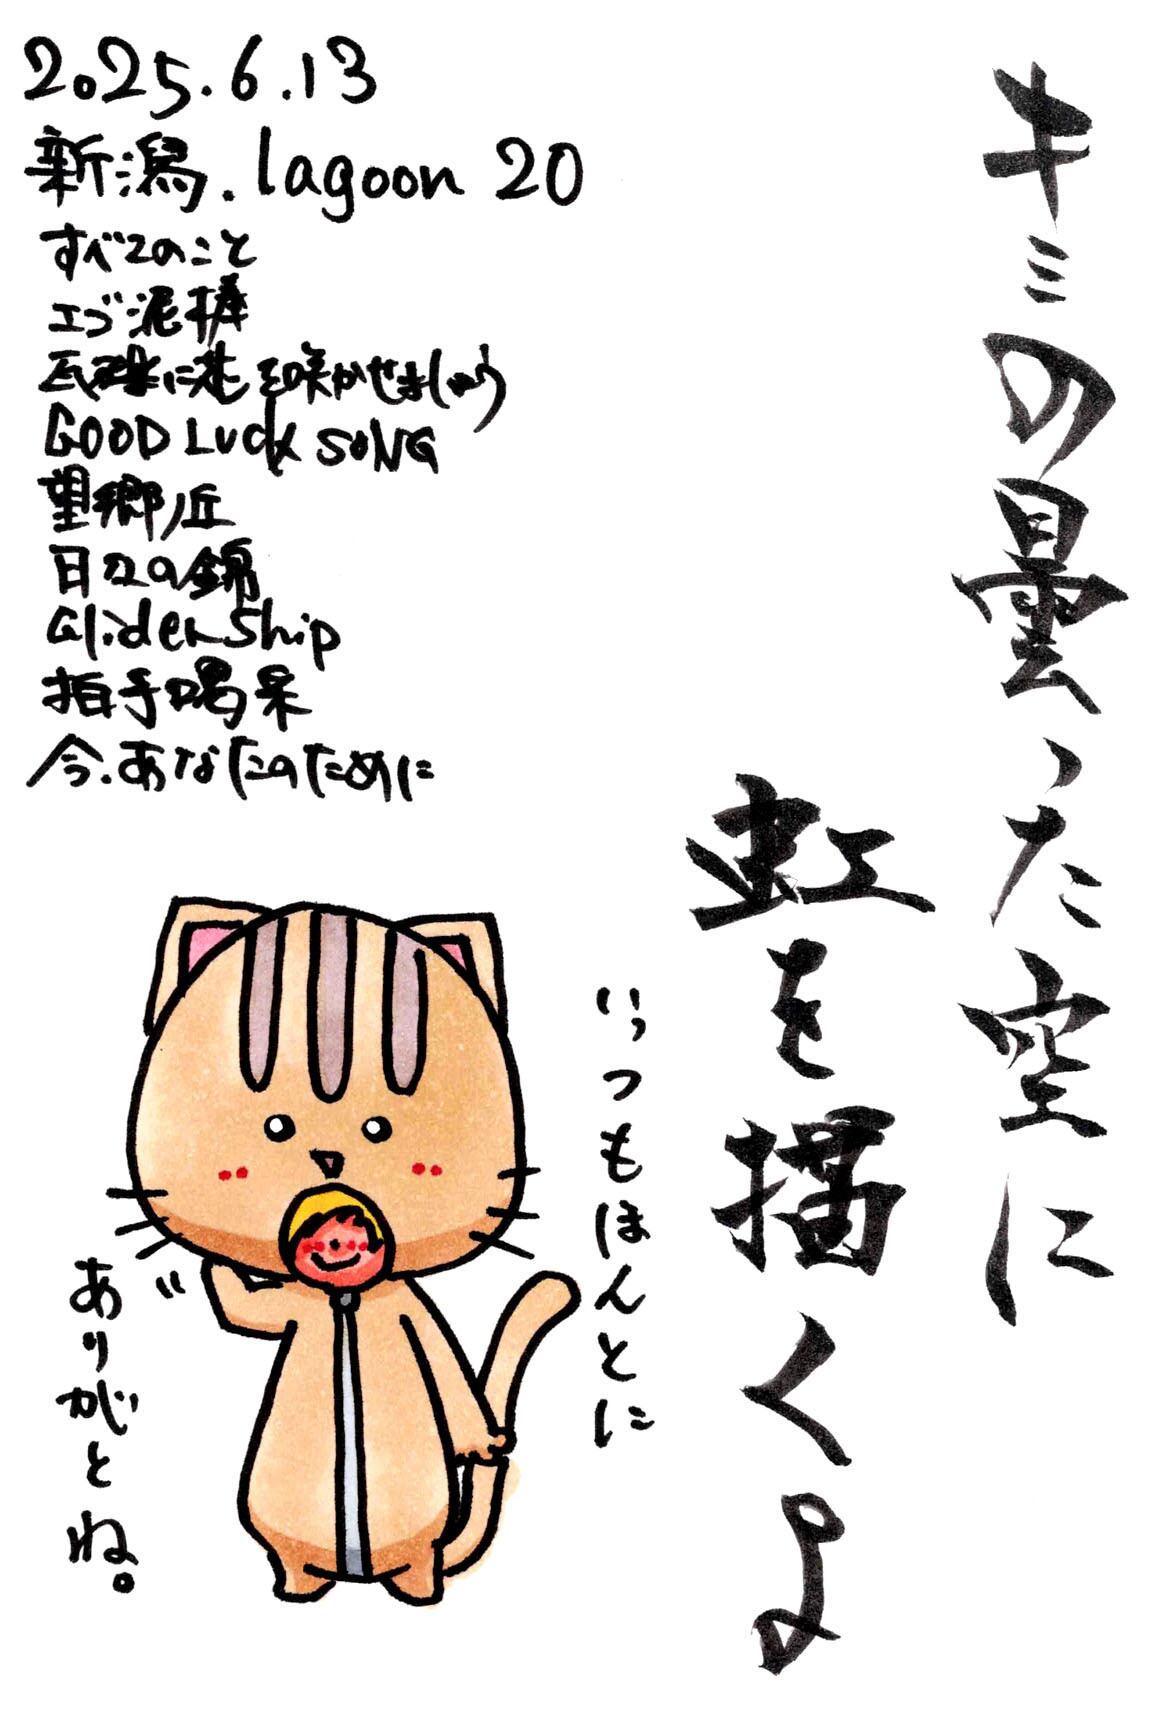 2025.6.13
新潟. lagoon 20
すべてのこと
エゴ泥棒
瓦礫に花を咲かせましょう
GOOD LUCK SONG
望郷ノ丘
日々の錦
GliderShip
拍手喝采
今、あなたのために
キミの曇った空に
虹を描くよ
いっつもほんとに
ありがとね。